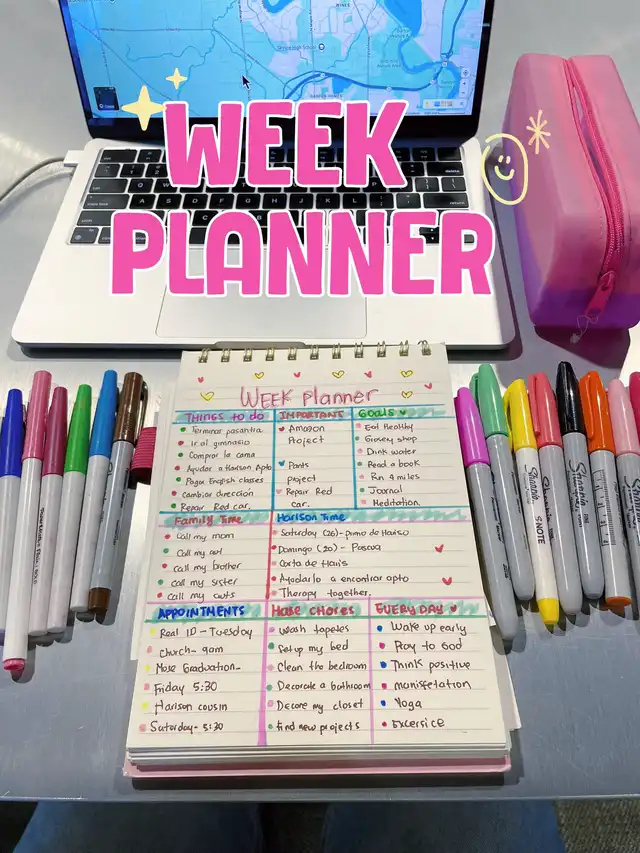 WEEK
PLANNER
WEEK Planner
THINGS to do
Terminar pasantia
Ir al gimnasio
Comprar la cama
Ayudar a Harison Apto
Pagar English classes
Cambiar dirección
Repair Red car.
IMPORTANT
Amazon
Project
Pants
project
Repair Red
car.
GOALS
Eat Healthy
Grocery shop
Drink water
Read a book
Run 4 miles
Journal
Meditation.
Family Time
Call my mom
Call my
Call my brother
Call my sister
Call my
Harison Time
Saturday (26) - primo de Hariso
Domingo (20) - Pascua
Carta de Haris
Ayudarlo a encontrar apto
Therapy together.
APPOINTMENTS
Real ID - Tuesday
Church - 9am
Mose Graduation -
Friday 5:30
Harison cousin
Saturday - 5:30
Hose Chores
Wash tapetes
Set up my bed
Clean the bedroom
Decorate a bathroom
Decore my closet
find new projects
EVERY DAY
Wake up early
Pray to God
Think positive
manisfetation
Yoga
Excersice
Sharpie
S.NOTE
Sharpie